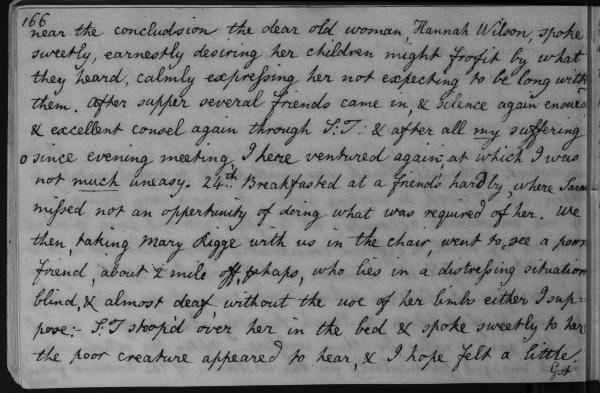 166
near the concludsion the dear old woman, Hannah Wilson, spoke
sweetly, earnestly desiring her children might profit by what
they heard, calmly expressing her not expecting to be long with
them. After supper several friends came in, & silence again ensued
& excellent consel again through S.T: & after all my suffering
since evening meeting, I here ventured again, at which I was
not much uneasy. 24th. Breakfasted at a friend's hard by, where Sam
missed not an opportunity of doing what was required of her. We
then, taking Mary Rigge with us in the chair, went to see a poor
friend, about ½ mile off, phaps, who lies in a distressing situation
blind, & almost deaf, without the use of her limbs either I sup=
pose:- S.T stoop'd over her in the bed & spoke sweetly to her
the poor creature appeared to hear, & I hope felt a little.
Got